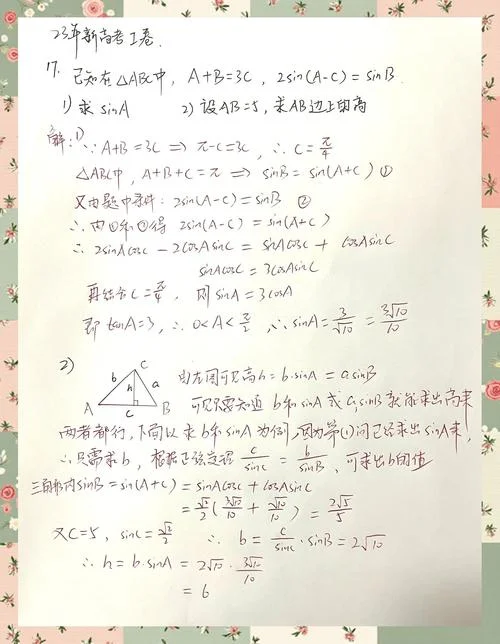 23年新高考I卷.
17. 已知在△ABC中, A+B=3C, 2sin(A-C)=sinB.
1) 求 sinA 2) 设AB=5, 求AB边上的高
解: 1) ∵ A+B=3C ⟹ π-C=3C, ∴ C=π/4
△ABC中, A+B+C=π ⟹ sinB=sin(A+C) ①
又由题中条件: 2sin(A-C)=sinB ②
∴ 由①和②得 2sin(A-C)=sin(A+C)
∴ 2sinAcosC-2cosAsinC=sinAcosC+cosAsinC
sinAcosC=3cosAsinC
再结合C=π/4, 则 sinA=3cosA
即 tanA=3, ∴ 0<A<π/2, ∴ sinA=3/√10=3√10/10
2) C b h a A c B 由左图可见高h=b·sinA=a·sinB
可见只需知道 b和sinA 或 a,sinB 就能求出高来
两者都行, 下面以求b和sinA为例, 因为第①问已经求出sinA来,
∴ 只需求b, 根据正弦定理 c/sinC=b/sinB, 可求出b的值
三角形内sinB=sin(A+C)=sinAcosC+cosAsinC
=√2/2(3√10/10+√10/10)=2√5/5
又C=5, sinC=√2/2 ∴ b=c/sinC·sinB=2√10
∴ h=b·sinA=2√10·3√10/10
=6